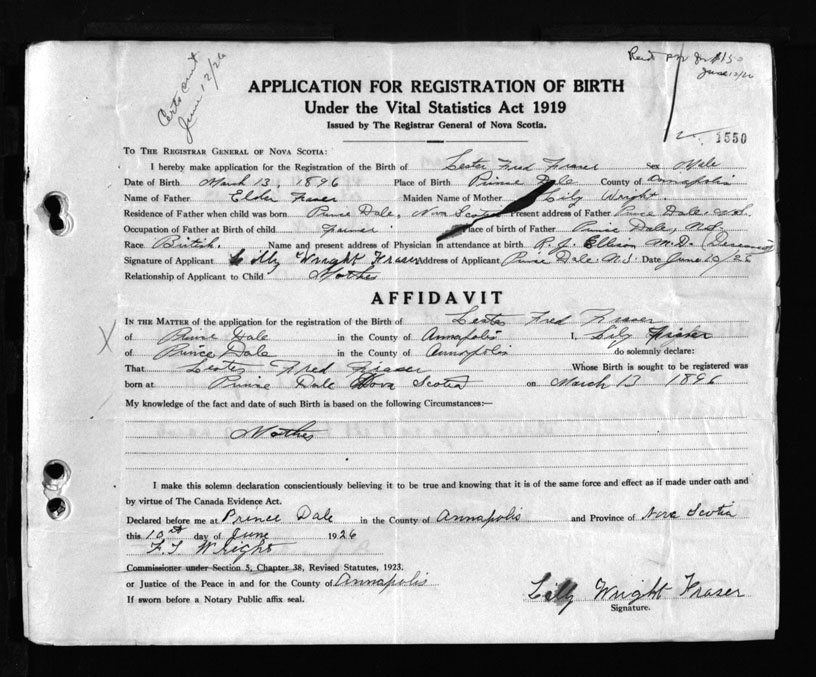 Certs sent
June 12/26
June 12/26
APPLICATION FOR REGISTRATION OF BIRTH
Under the Vital Statistics Act 1919
Issued by The Registrar General of Nova Scotia.
1550
TO THE REGISTRAR GENERAL OF NOVA SCOTIA:
I hereby make application for the Registration of the Birth of Lester Fred Fraser Sex Male
Date of Birth March 13, 1896 Place of Birth Prince Dale County of Annapolis
Name of Father Elder Fraser Maiden Name of Mother Lily Wright
Residence of Father when child was born Prince Dale, Nova Scotia Present address of Father Prince Dale N.S.
Occupation of Father at Birth of child Farmer Place of birth of Father Prince Dale, N.S.
Race British. Name and present address of Physician in attendance at birth R. J. Ellison M.D. (Deceased)
Signature of Applicant Lilly Wright Fraser Address of Applicant Prince Dale N.S. Date June 10/26
Relationship of Applicant to Child Mother
AFFIDAVIT
IN THE MATTER of the application for the registration of the Birth of Lester Fred Fraser
of Prince Dale in the County of Annapolis I, Lily Fraser
of Prince Dale in the County of Annapolis do solemnly declare:
That Lester Fred Fraser Whose Birth is sought to be registered was
born at Prince Dale Nova Scotia on March 13 1896
My knowledge of the fact and date of such Birth is based on the following Circumstances:—
Mother
I make this solemn declaration conscientiously believing it to be true and knowing that it is of the same force and effect as if made under oath and
by virtue of The Canada Evidence Act.
Declared before me at Prince Dale in the County of Annapolis and Province of Nova Scotia
this 10th day of June 1926
F. T. Wright
Commissioner under Section 5, Chapter 38, Revised Statutes, 1923.
or Justice of the Peace in and for the County of Annapolis
If sworn before a Notary Public affix seal.
Lilly Wright Fraser
Signature.